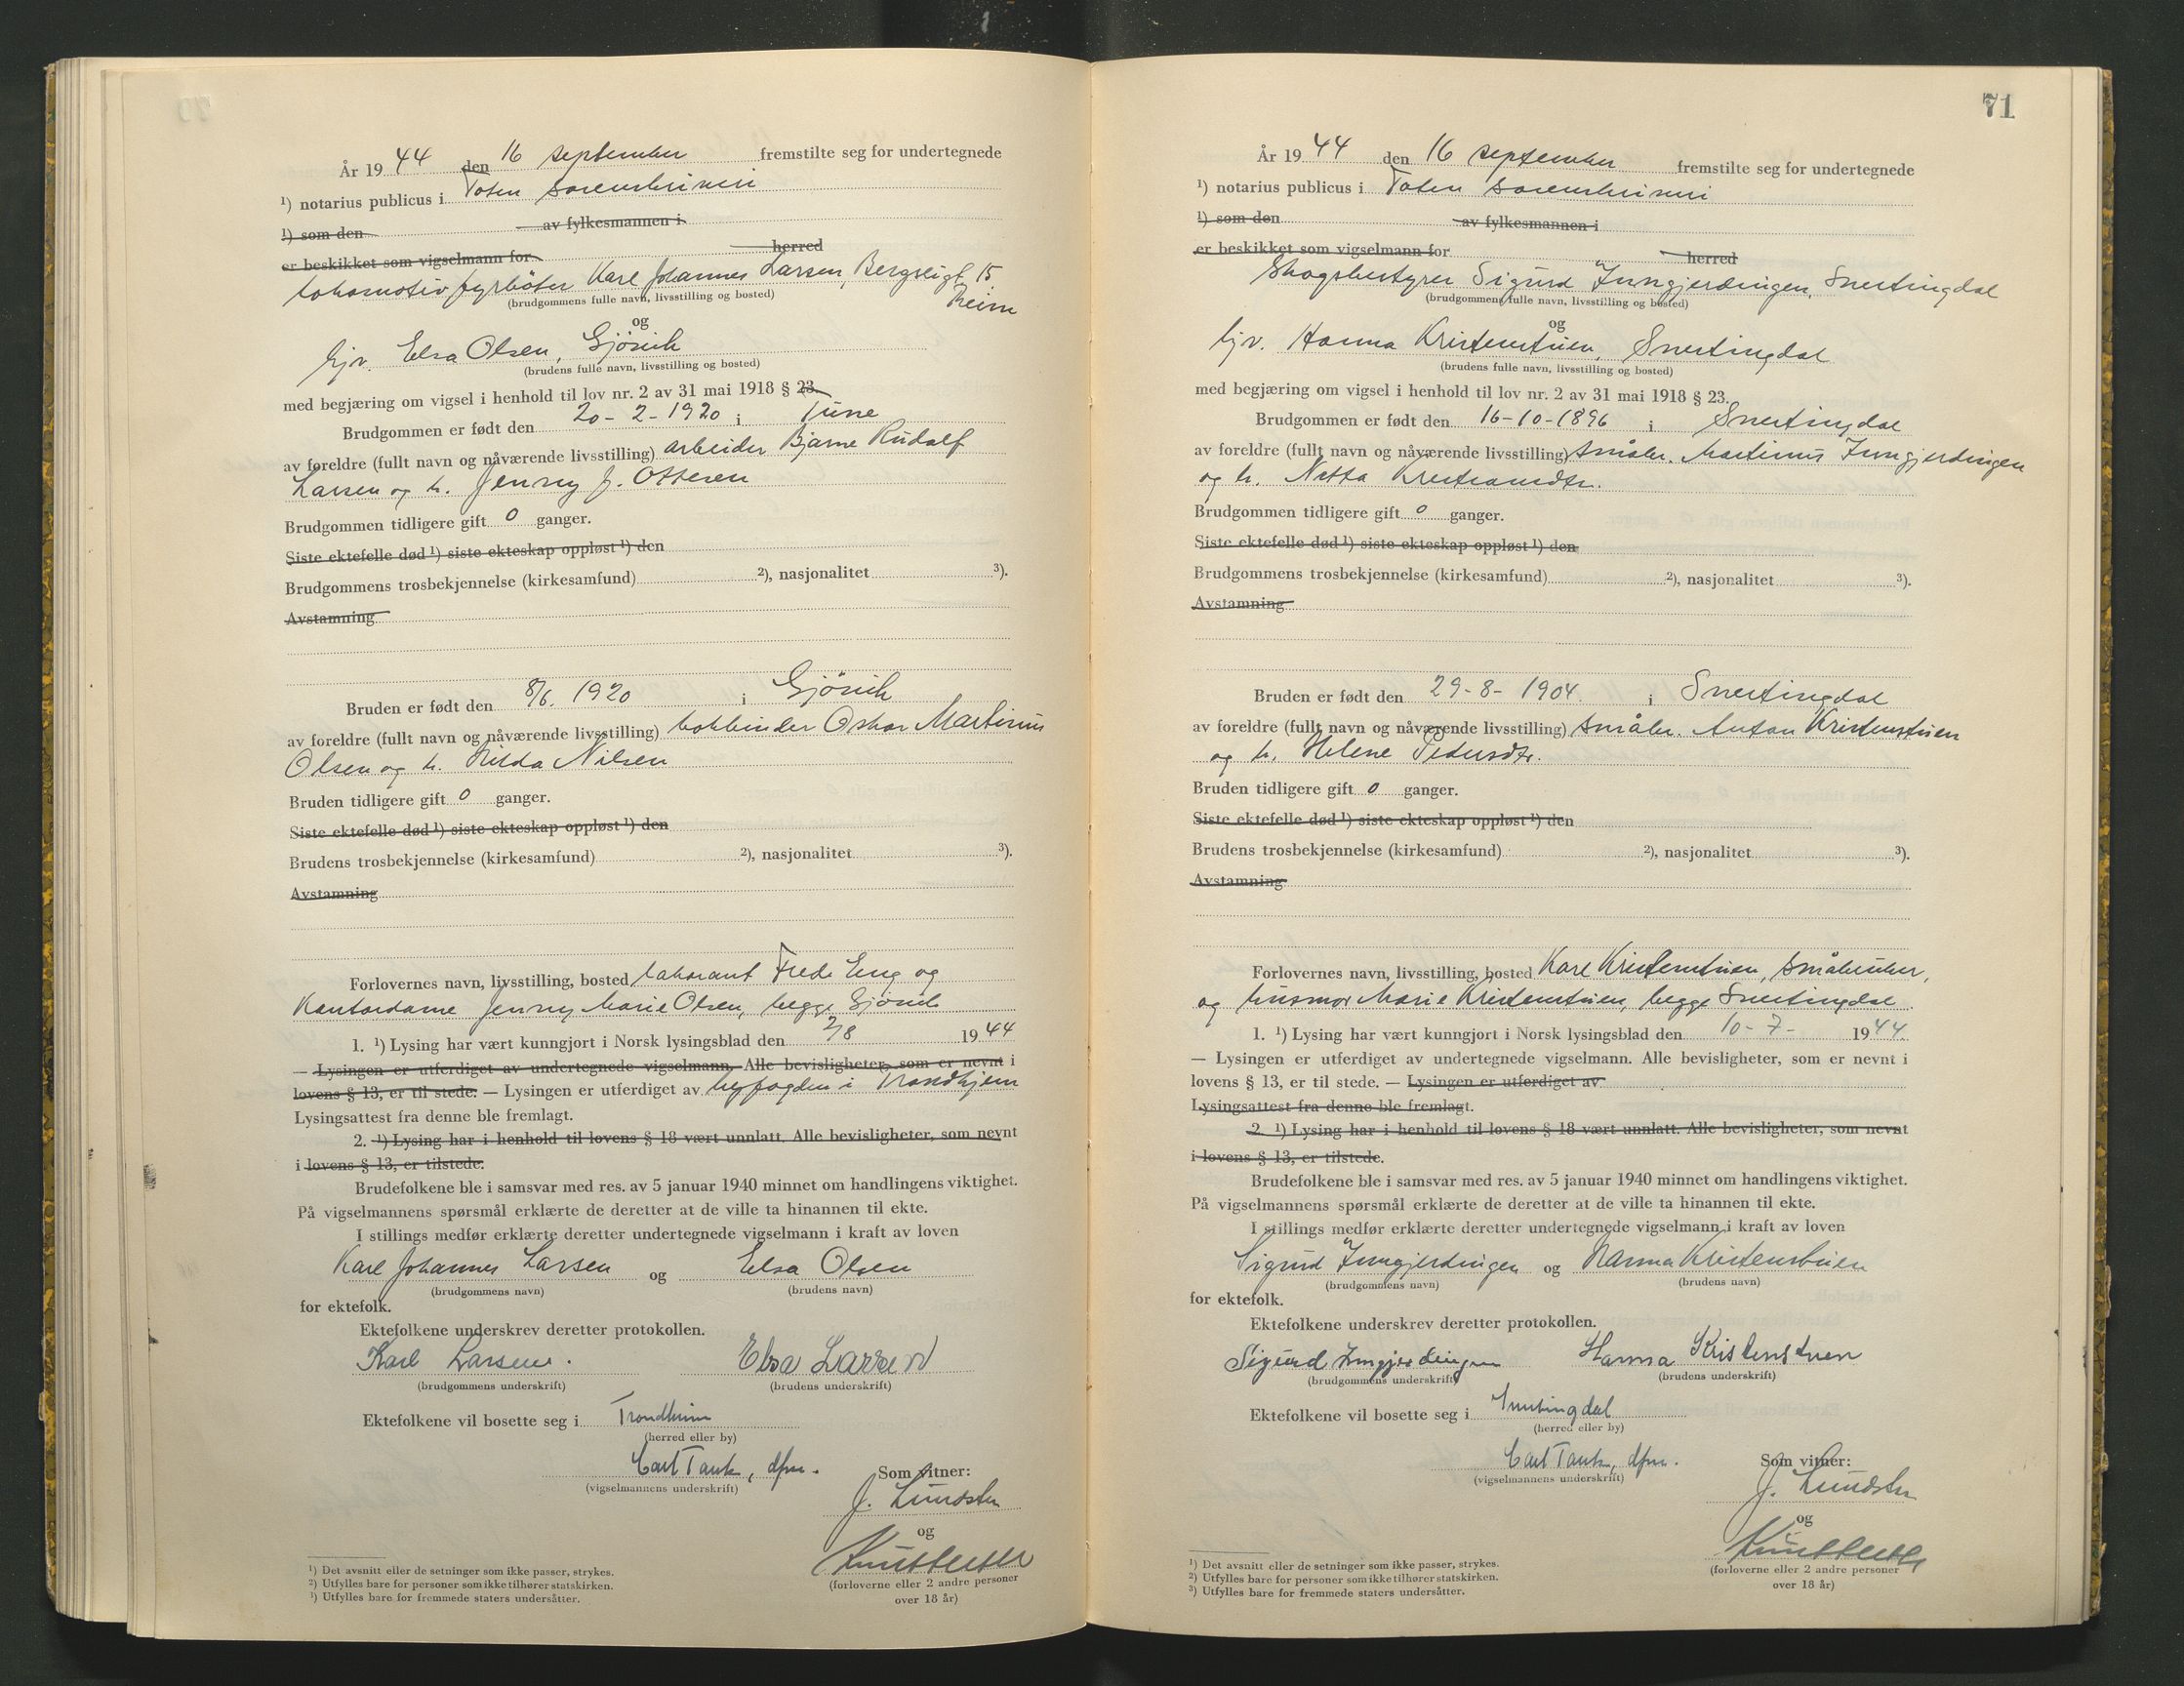 År 19 44 den 16 september fremstilte seg for undertegnede
¹) notarius publicus i Toten sorenskriveri
¹) som den av fylkesmannen i
er beskikket som vigselmann for herred
lokomotivfyrbøter Karl Johannes Larsen, 15
(brudgommens fulle navn, livsstilling og bosted)
og
frk. Elsa Olsen, Gjövik
(brudens fulle navn, livsstilling og bosted)
med begjæring om vigsel i henhold til lov nr. 2 av 31 mai 1918 § 23.
Brudgommen er født den 20-2-1920 i Tune
av foreldre (fullt navn og nåværende livsstilling) arbeider Bjarne Rudolf
Larsen og h. Jenny J. Ottesen
Brudgommen tidligere gift 0 ganger.
Siste ektefelle død ¹) siste ekteskap oppløst ¹) den
Brudgommens trosbekjennelse (kirkesamfund) ²), nasjonalitet ³).
Avstamning
Bruden er født den 8/6. 1920 i Gjövik
av foreldre (fullt navn og nåværende livsstilling) bokbinder Oskar Martinius
Olsen og h. Hilda Nilsen
Bruden tidligere gift 0 ganger.
Siste ektefelle død ¹) siste ekteskap oppløst ¹) den
Brudens trosbekjennelse (kirkesamfund) ²), nasjonalitet ³).
Avstamning
Forlovernes navn, livsstilling, bosted laborant Eng og
Kontordame Jenny Marie Olsen, begge Gjövik
1. ¹) Lysing har vært kunngjort i Norsk lysingsblad den 2/8 19 44
— Lysingen er utferdiget av undertegnede vigselmann. Alle bevisligheter, som er nevnt i
lovens § 13, er til stede. — Lysingen er utferdiget av byfogden i Trondhjem
Lysingsattest fra denne ble fremlagt.
2. ¹) Lysing har i henhold til lovens § 18 vært unnlatt. Alle bevisligheter, som nevnt
i lovens § 13, er tilstede.
Brudefolkene ble i samsvar med res. av 5 januar 1940 minnet om handlingens viktighet.
På vigselmannens spørsmål erklærte de deretter at de ville ta hinannen til ekte.
I stillings medfør erklærte deretter undertegnede vigselmann i kraft av loven
Karl Johannes Larsen og Elsa Olsen
(brudgommens navn) (brudens navn)
for ektefolk.
Ektefolkene underskrev deretter protokollen.
Karl Larsen. Elsa Larsen
(brudgommens underskrift) (brudens underskrift)
Ektefolkene vil bosette seg i Trondheim
(herred eller by)
Carl Tank, dfm.
(vigselmannens underskrift)
Som vitner:
J. Lundsten
og
(forloverne eller 2 andre personer
over 18 år)
¹) Det avsnitt eller de setninger som ikke passer, strykes.
²) Utfylles bare for personer som ikke tilhører statskirken.
³) Utfylles bare for fremmede staters undersåtter.
71
År 19 44 den 16 september fremstilte seg for undertegnede
¹) notarius publicus i Toten sorenskriveri
¹) som den av fylkesmannen i
er beskikket som vigselmann for herred
Skogbestyrer Sigurd Inngjerdingen, Snertingdal
(brudgommens fulle navn, livsstilling og bosted)
og
frk. Hanna Kristenstuen, Snertingdal
(brudens fulle navn, livsstilling og bosted)
med begjæring om vigsel i henhold til lov nr. 2 av 31 mai 1918 § 23.
Brudgommen er født den 16-10-1896 i Snertingdal
av foreldre (fullt navn og nåværende livsstilling) småbr. Martinus Inngjerdingen
og h. Netta Kristiansdtr.
Brudgommen tidligere gift 0 ganger.
Siste ektefelle død ¹) siste ekteskap oppløst ¹) den
Brudgommens trosbekjennelse (kirkesamfund) ²), nasjonalitet ³).
Avstamning
Bruden er født den 29-8-1904. i Snertingdal
av foreldre (fullt navn og nåværende livsstilling) småbr. Anton Kristenstuen
og h. Helene Pedersdtr.
Bruden tidligere gift 0 ganger.
Siste ektefelle død ¹) siste ekteskap oppløst ¹) den
Brudens trosbekjennelse (kirkesamfund) ²), nasjonalitet ³).
Avstamning
Forlovernes navn, livsstilling, bosted Karl Kristenstuen, småbruker,
og husmor Marie Kristenstuen, begge Snertingdal
1. ¹) Lysing har vært kunngjort i Norsk lysingsblad den 10-7- 19 44.
— Lysingen er utferdiget av undertegnede vigselmann. Alle bevisligheter, som er nevnt i
lovens § 13, er til stede. — Lysingen er utferdiget av
Lysingsattest fra denne ble fremlagt.
2. ¹) Lysing har i henhold til lovens § 18 vært unnlatt. Alle bevisligheter, som nevnt
i lovens § 13, er tilstede.
Brudefolkene ble i samsvar med res. av 5 januar 1940 minnet om handlingens viktighet.
På vigselmannens spørsmål erklærte de deretter at de ville ta hinannen til ekte.
I stillings medfør erklærte deretter undertegnede vigselmann i kraft av loven
Sigurd Inngjerdingen og Hanna Kristenstuen
(brudgommens navn) (brudens navn)
for ektefolk.
Ektefolkene underskrev deretter protokollen.
Sigurd Inngjerdingen Hanna Kristenstuen
(brudgommens underskrift) (brudens underskrift)
Ektefolkene vil bosette seg i Snertingdal
(herred eller by)
Carl Tank, dfm.
(vigselmannens underskrift)
Som vitner:
J. Lundsten
og
(forloverne eller 2 andre personer
over 18 år)
¹) Det avsnitt eller de setninger som ikke passer, strykes.
²) Utfylles bare for personer som ikke tilhører statskirken.
³) Utfylles bare for fremmede staters undersåtter.